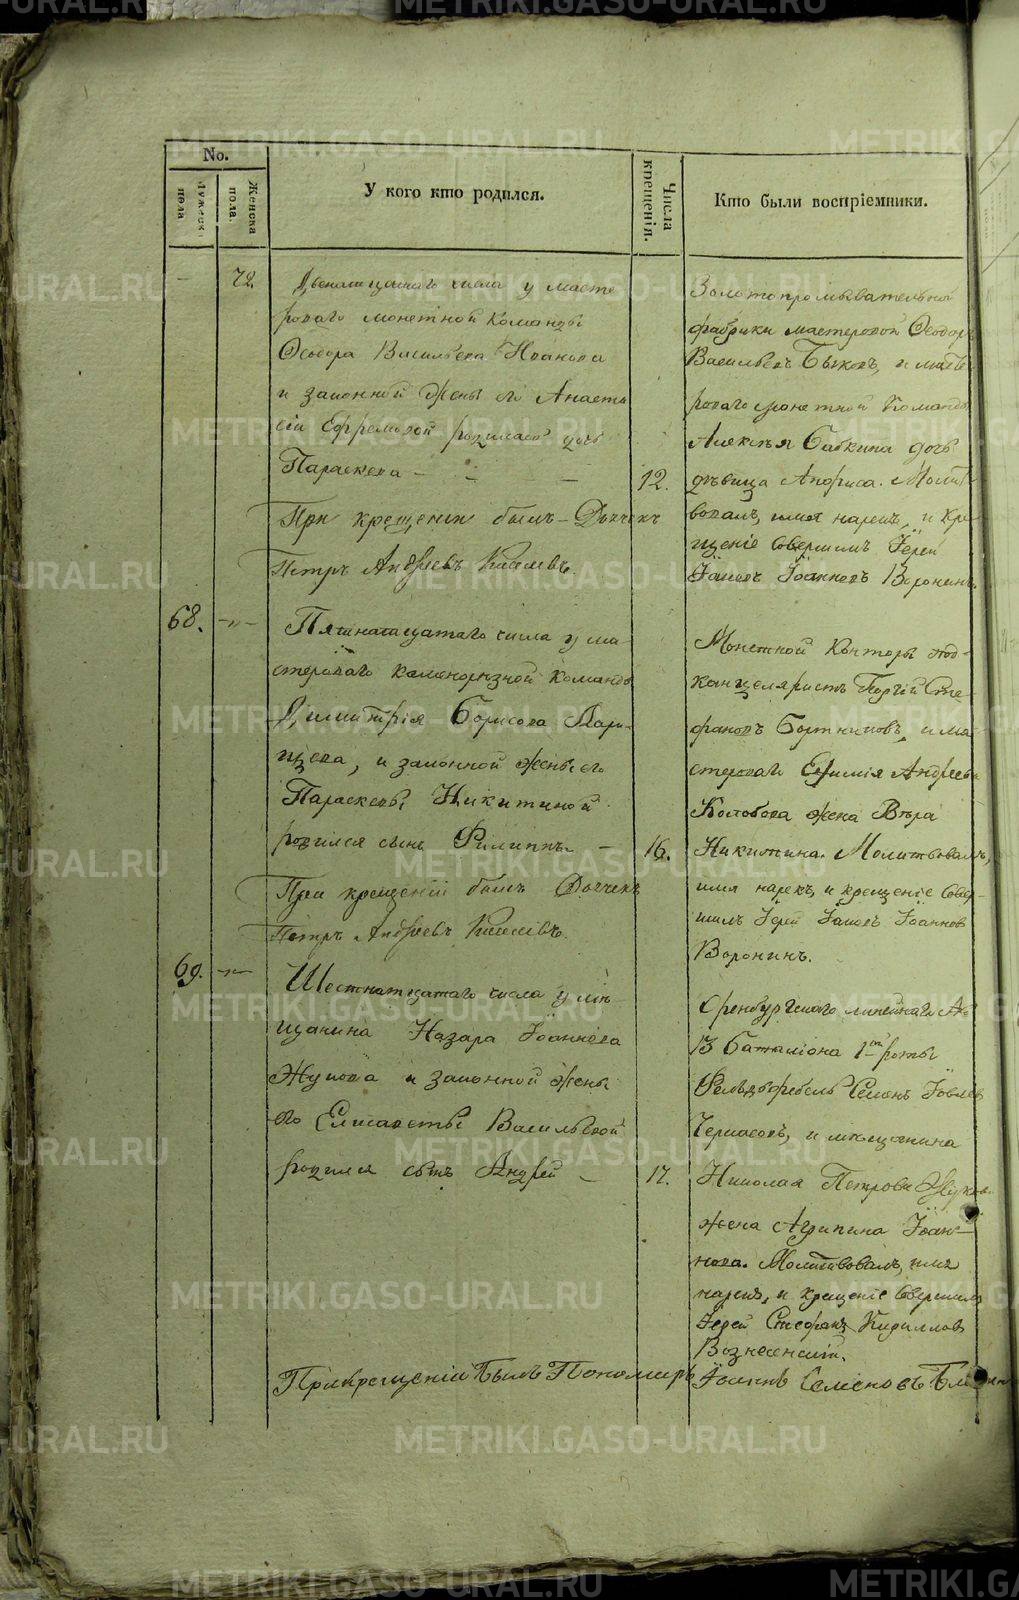 No.
Мужеска пола
Женска пола.
У кого кто родился.
Числа крещенія.
Кто были воспріемники.
72.
Двенатцатаго числа у масте
роваго монетной команды
Ѳеодора Васильева Иванова
и законной жены его Анаста
сіи Ефремовой родилась дочь
Параскева
12.
При крещеніи былъ Дьячекъ
Петръ Андреевъ Киселевъ.
Золотопромывательной
фабрики мастеровой Ѳеодоръ
Васильевъ Быковъ, и масте
роваго монетной команды
Алексѣя Бабкина дочь
дѣвица Анфиса. Молит
вовалъ, имя нарекъ, и кре
щеніе совершилъ Іерей
Іаковъ Іоанновъ Воронинъ.
68.
Пятнатцатаго числа у ма
стероваго каменорезной команды
Димитрія Борисова
и законной жены его
Параскевы Никитиной
родился сынъ Филиппъ
16.
При крещеніи былъ Дьячекъ
Петръ Андреевъ Киселевъ.
Монетной Конторы под-
канцеляристъ Георгій Сте
фановъ Бортниковъ, и ма
стероваго Евѳимія Андреева
жена Вѣра
Никитина. Молитвовалъ,
имя нарекъ, и крещеніе совер-
шилъ Іерей Іаковъ Іоанновъ
Воронинъ.
69.
Шестнатцатаго числа у мѣ-
щанина Назара Іоаннова
Жукова и законной жены
его Елисаветы Васильевой
родился сынъ Андрей
17.
Оренбургскаго линейнаго №
13 баталіона 1й роты
Фельдфебель Семенъ Іовлевъ
Черкасовъ, и мѣщанина
Николая Петрова Жукова
жена Агрипина Іоан-
нова. Молитвовалъ, имя
нарекъ, и крещеніе совершилъ
Іерей Стефанъ Кирилловъ
Вознесенскій.
При крещеніи былъ Пономарь Іоаннъ Семеновъ
METRIKI.GASO-URAL.RU